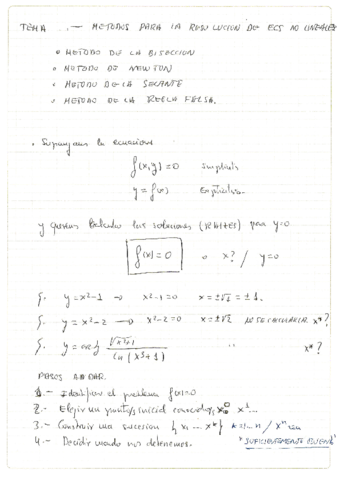 TEMA .- METODOS PARA LA RESOLUCION DE ECS NO LINEALES
• METODO DE LA BISECCION
• METODO DE NEWTON
• METODO DE LA SECANTE
• METODO DE LA REGLA FALSA.
• Supongamos la ecuacion
f(x,y) = 0 Implicita
y = f(x) Explicita.
y queremos calcular las soluciones (raices) para y=0
f(x) = 0 o x? / y=0
y = x²-1 → x²-1=0 x = ±√1 = ±1.
y = x²-2 → x²-2=0 x = ±√2 x*?
y = √x²+1 / Ln(x³+1) " x*?
PASOS A DAR.
1.- Identificar el problema f(x)=0
2.- Elegir un punto inicial conocido, x⁰ x¹...
3.- Construir una sucesion {x₁ ... x*} k=1...n / xⁿ sea
4.- Decidir cuando nos detenemos. "SUFICIENTEMENTE BUENO"